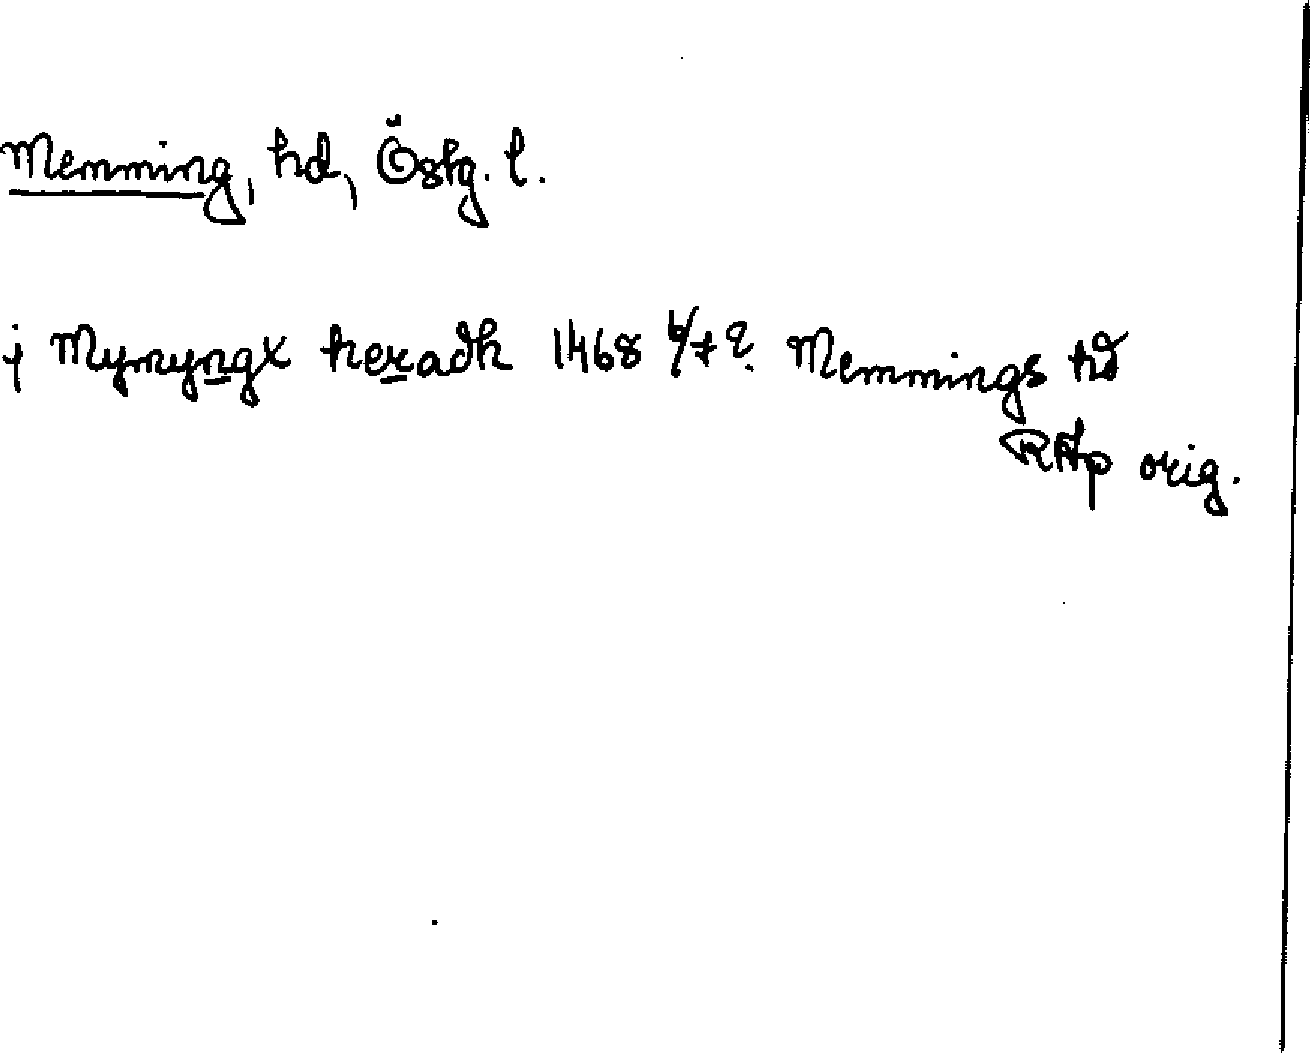 Memming, hd, Östg. l.
j Mynyngx heradh 1468 6/7 ? Memmings hd
RAp orig.